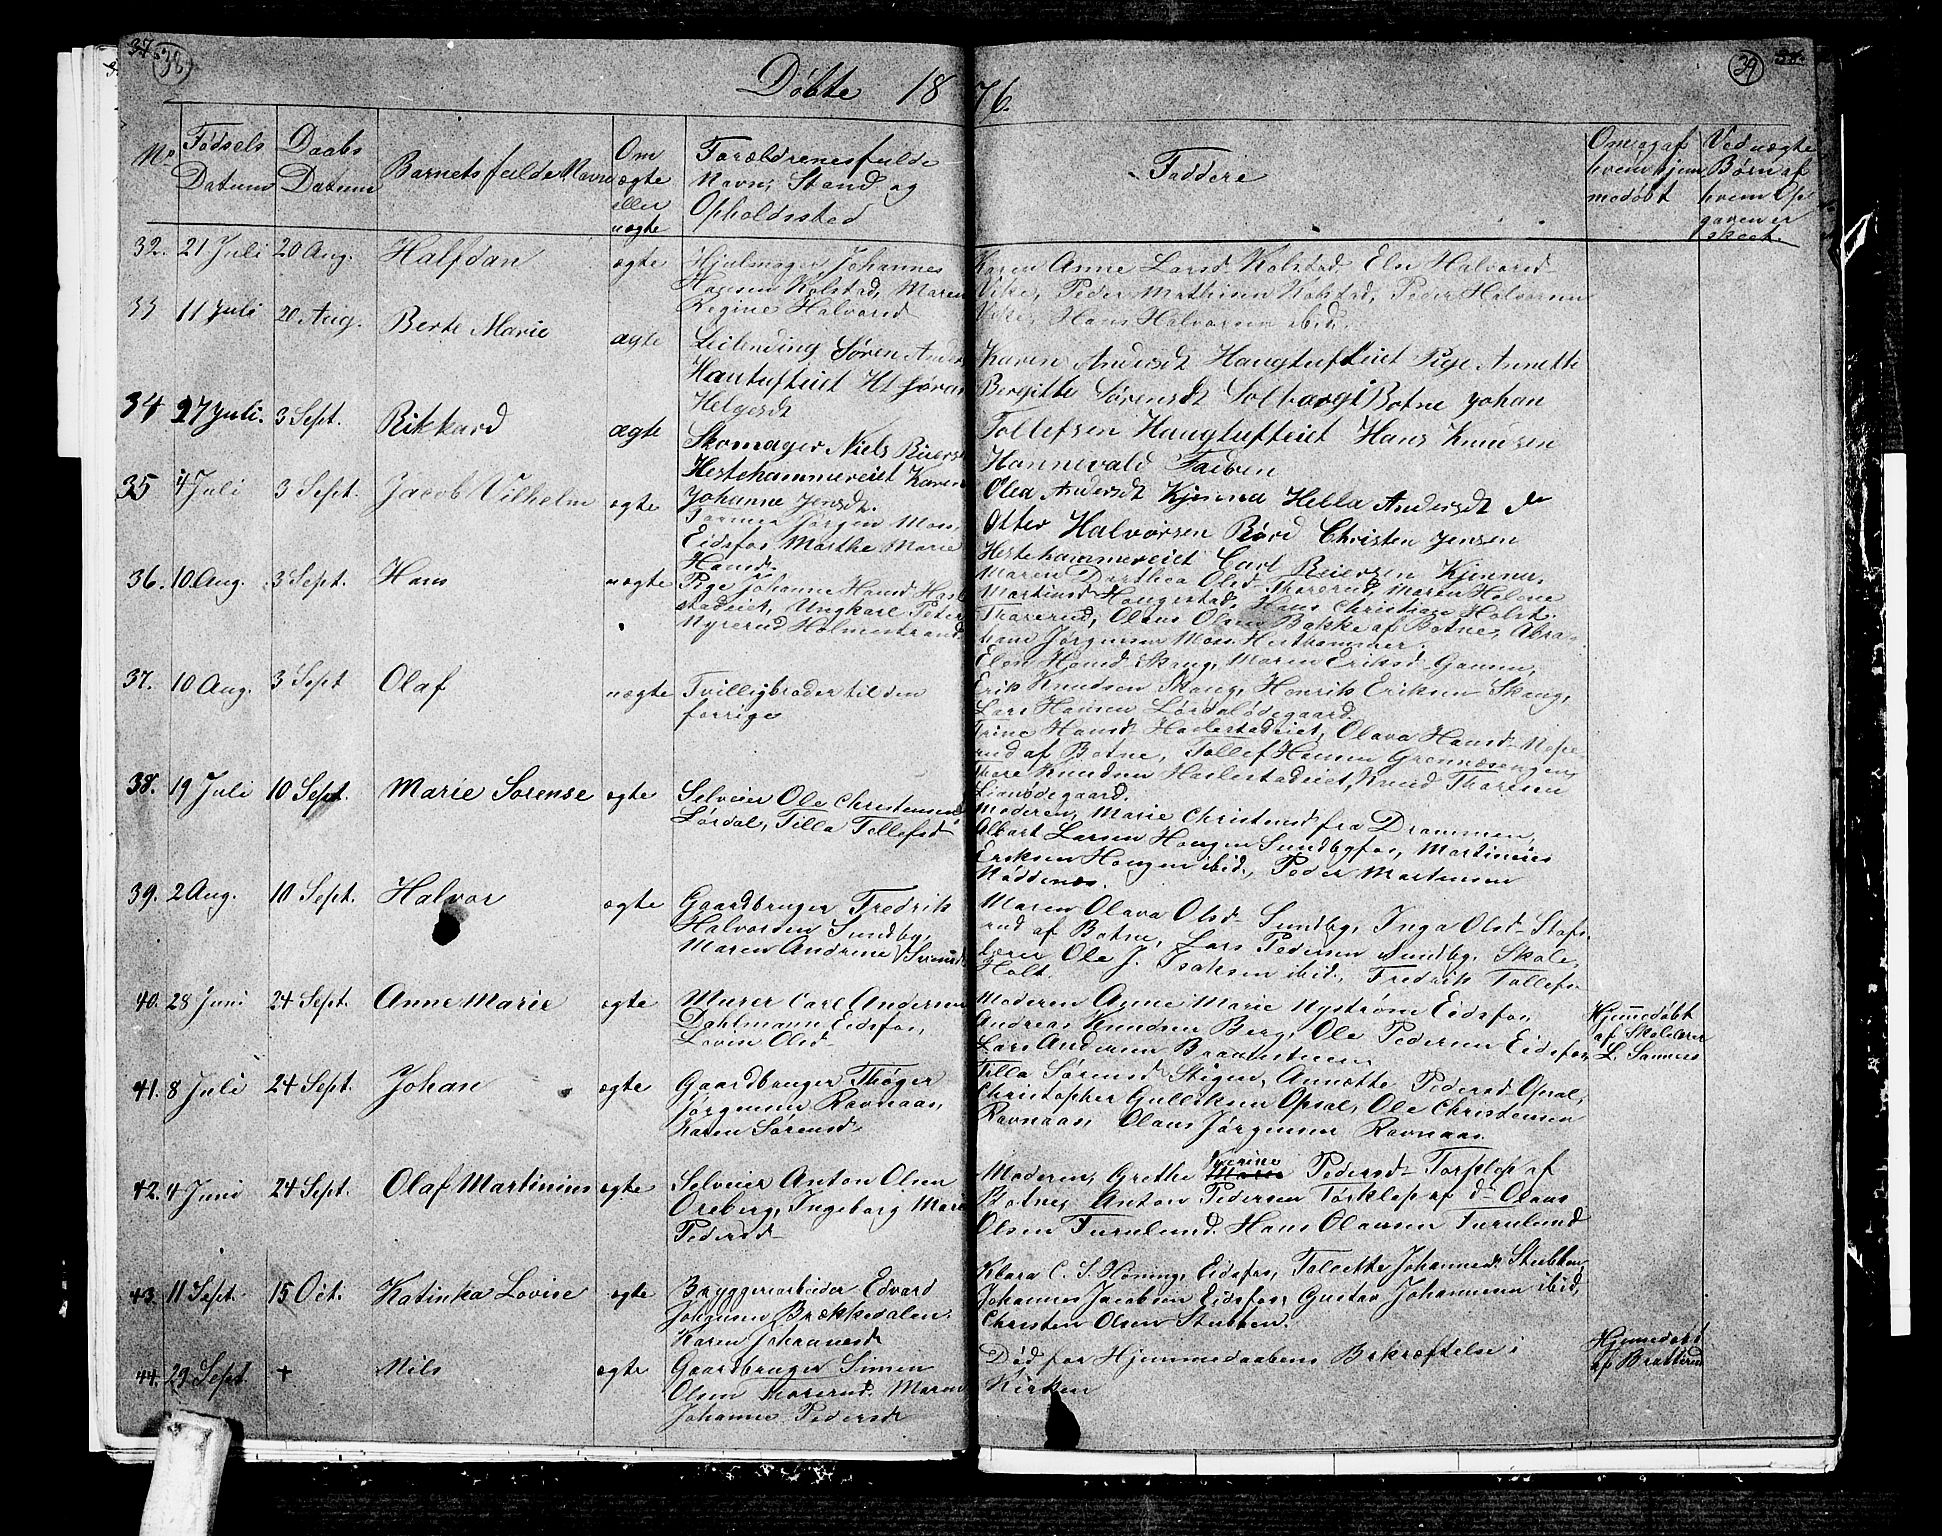 37. 38 39
Døbte 1876.
No
Fødsels Datum
Daabs Datum
Barnets fulde Navn
Om ægte eller uægte
Forældrenes fulde Navn, Stand og Opholdssted
Faddere
Om og af hvem hjemmedøbt
Ved uægte Børn af hvem Opgaven er skeet.
32. 21 Juli 20 Aug. Halfdan ægte
Hjulmager Johannes
Hansen Kolstad, Maren
Regine Halvorsd
Karen Anne Larsd Kolstad, Eln Halvorsd
Vike, Peder Mathisen Kolstad, Peder Halvorsen
Vike, Hans Halvorsen ibid.
33 11 Juli 20 Aug. Berte Marie ægte
Leilending Søren Anders
Hautufteiet
Helgesdt
Karen Andersdt Haugtufteiet Pige Annette
Bergitte Sørensdt Solbergi Botne Johan
Tollefsen Haugtufteiet Hans Knudsen
Hannevald Faderen
34 27 Juli. 3 Sept. Rikkard ægte
Skomager Niels Reiers
Hestehammereiet Karen
Johanne Jensdt.
Olea Andersdt Kjenna Hella Andersdt do
Otter Halvorsen Børe Christen Jensen
Hestehammereiet Carl Reiersen Kjenna,
35 4 Juli 3 Sept. Jacob Vilhelm ægte
Former Jørgen Moss,
Eidsfos, Marthe Marie
Hansd.
Maren Dorthea Olsd Thorerud, Maren Helene
Martinsd Haugestad, Hans Christian Holst
Thorerud, Olaus Olsen Bakke af Botne, Abra-
ham Jørgensen Moss Hesthammer,
36. 10 Aug. 3 Sept. Hans uægte
Pige Johanne Hansd. Hasle-
stadeiet, Ungkarl Peter
Nyrerud Holmestrand
Elen Hansd Skaug, Maren Eriksd
Erik Knudsen Skaug, Henrik Eriksen Skaug,
Lars Hansen Lørdalødegaard
37. 10 Aug. 3 Sept Olaf uægte
Tvilligbroder til den
forrige
Trine Hansd Haslestadeiet, Olava Hansd
rud af Botne, Tollef Hansen Grønnæsengen,
Thore Knudsen Haslestadeiet, Knud Thoresen
38. 19 Juli 10 Sept. Marie Sørense ægte
Selveier Ole Christensen
Lørdal, Tilla Tollefsd
Moderen, Marie Christensd fra Drammen,
Albert Larsen Haugen Sundbyfos, Martinius
Eriksen Haugen ibid., Peder Martinsen
Nøddenes.
39. 2 Aug. 10 Sept. Halvor ægte
Gaardbruger Fredrik
Halvorsen Sundby,
Maren Andrine
Maren Olava Olsd Sundby, Inga Olsd
rud af Botne, Lars Pedersen Sundby, Skole-
lærer Ole J. Isaksen ibid., Fredrik Tollefsen
Holt.
40. 28 Juni 24 Sept. Anne Marie ægte
Murer Carl Andersen
Dahlmann Eidsfos,
Lovise Olsd
Moderen Anne Marie Nystrøm Eidsfos,
Andreas Knudsen Berg, Ole Pedersen Eidsfos,
Lars Andersen
Hjemmedøbt
af Skolelærer
L. Sannes
41. 8 Juli 24 Sept. Johan ægte
Gaardbruger Thøger
Jørgensen Ravnaas,
Karen Sørensd
Tilla Sørensd Stigen, Annette Pedersd Opsal,
Christopher Gulliksen Opsal, Ole Christensen
Ravnaas, Olaus Jørgensen Ravnaas.
42. 4 Juni 24 Sept. Olaf Martinius ægte
Selveier Anton Olsen
Oreberg, Ingeborg Marie
Pedersd
Moderen, Grethe Pedersd Torklop af
Botne, Anton Pedersen Torklop af do Olaus
Olsen Furulund, Hans Olausen Furulund
43. 11 Sept. 15 Oct. Katinka Lovise ægte
Bryggeriarbeider Edvard
Johansen Brækkedalen
Karen Johannesd
Klara C. S. Høning, Eidsfos, Tollette Johannesd Stubben,
Johannes Jacobsen Eidsfos, Gustav Johannesen ibid,
Christen Olsen Stubben.
44. 29 Sept. + Nils ægte
Gaardbruger Simen
Olsen Thorerud, Maren
Johanne Pedersd
Død før Hjemmedaabens Bekræftelse i
Kirken
Hjemmedøbt
af Bratterud